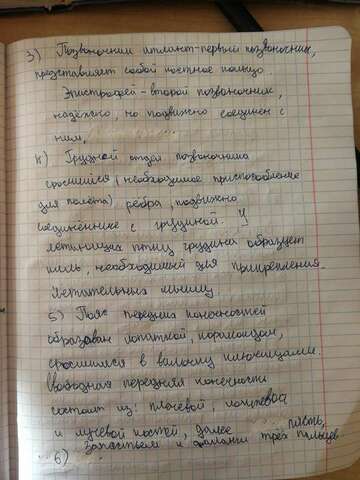 3) Позвоночник атлант-первый позвоночник,
представляет собой костное кольцо.
Эпистрофей-второй позвоночник,
надёжно, но подвижно соединён с
ним.
4) Грудной отдел позвоночника
сросшийся (необходимое приспособление
для полёта) рёбра, подвижно
соединённые с грудиной. У
летающих птиц грудина образует
киль, необходимый для прикрепления
летательных мышц
5) Пояс передних конечностей
образован лопаткой, коракоидом,
сросшимися в вилочку ключицами.
Свободная передняя конечность
состоит из: плечевой, локтевой
и лучевой костей, далее пясть,
запястьем и фаланги трёх пальцев
6)